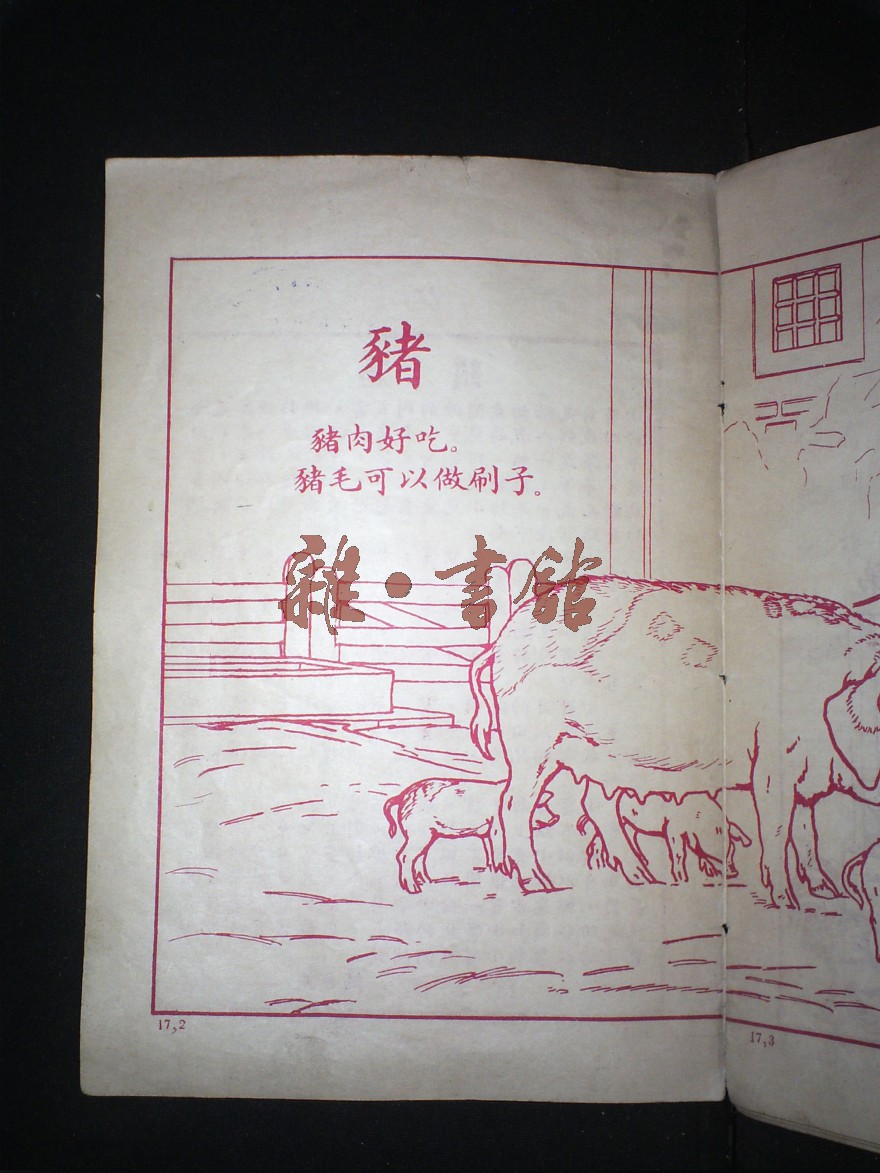 豬
豬肉好吃。
豬毛可以做刷子。
雜·書館
17,2
17,3